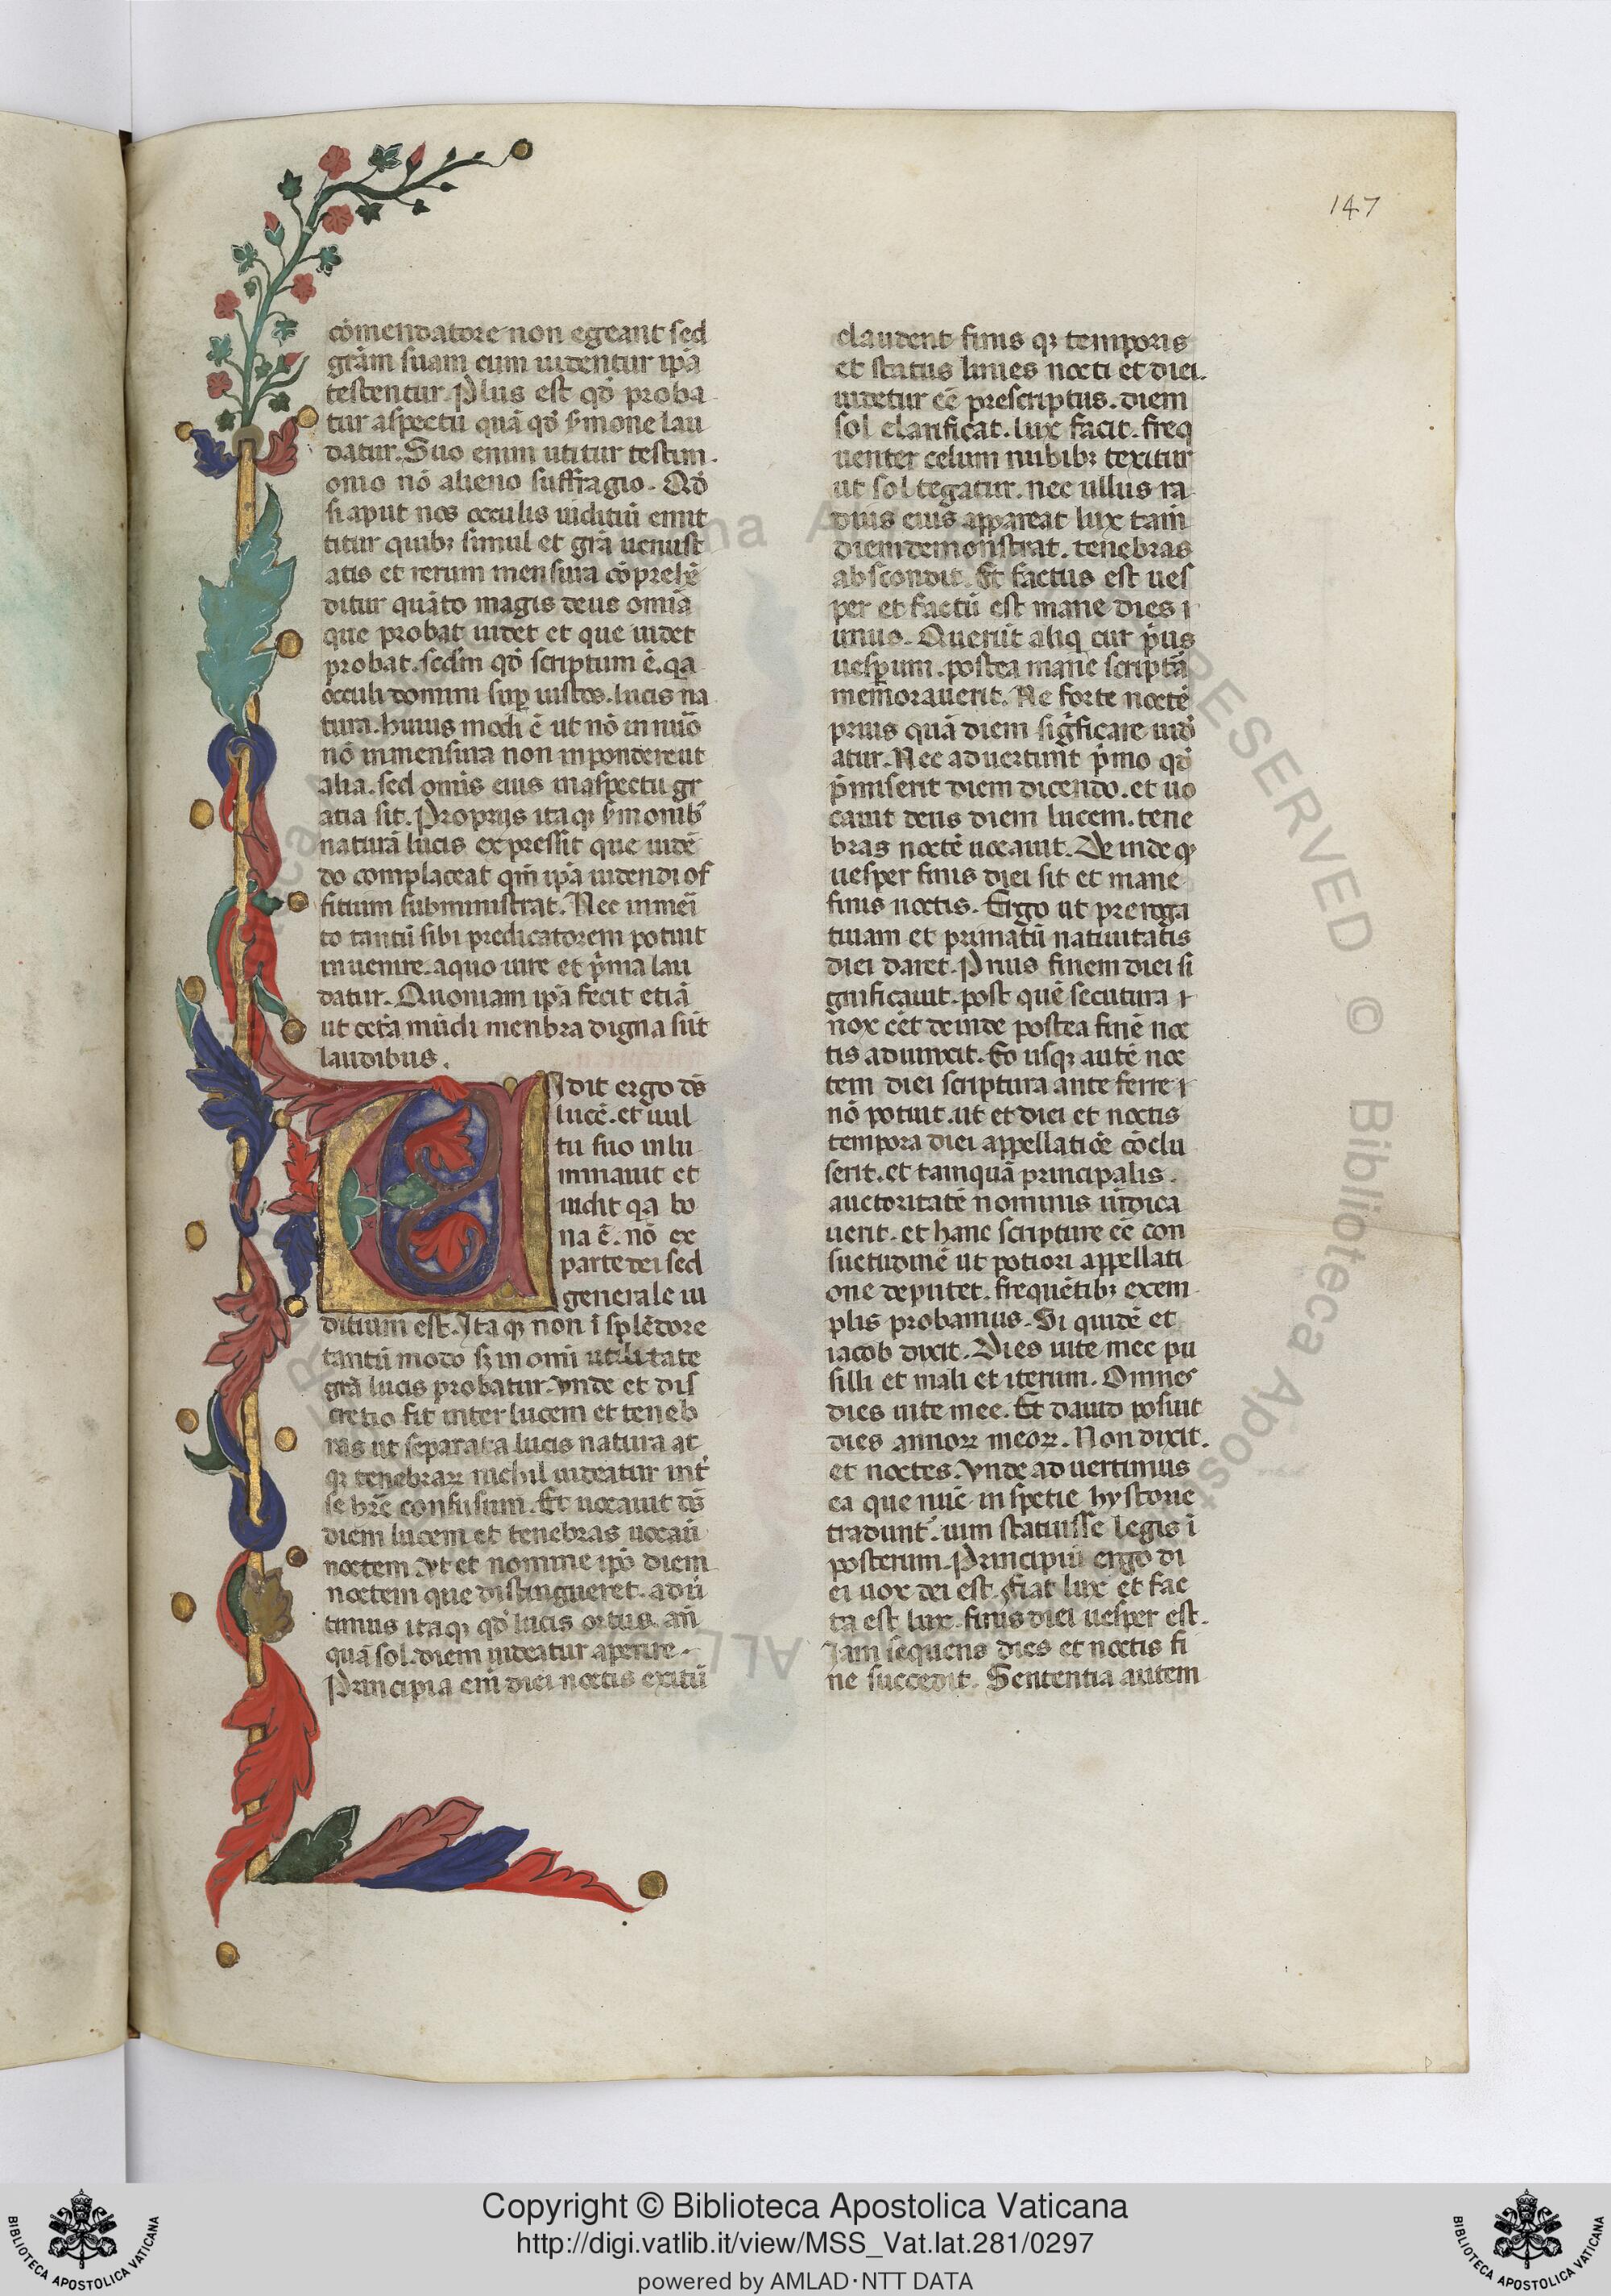 147
cōmendatore non egeant sed
grām suam cum uidentur ip̄a
testentur. Plus est qd̄ proba
tur aspectu quā qd̄ s̄mone lau
datur. Suo enim utitur testim
onio nō alieno suffragio. Qd̄
si aput nos occulis uiditiū emit
titur quibꝫ simul et grā uenust
atis et rerum mensura cōprehē
ditur quāto magis deus omīa
que probat uidet et que uidet
probat. sedm̄ qd̄ scriptum ē. qa
occuli domini sup̱ iustos. lucis na
tura. huius modi ē ut nō in nūo
nō in mensura non in pondere ut
alia. sed omīs eius in aspectu gr
atia sit. Proprijs itaqꝫ s̄monibꝰ
naturā lucis expressit que uidē
do complaceat qm̄ ip̄a uidendi of
fitium subministrat. Nec in meri
to tantū sibi predicatorem potuit
inuenire. a quo iure et p̄ma lau
datur. Quoniam ip̄a fecit etiā
ut cet̄a mūdi menbra digna sūt
laudibus.
Uidit ergo ds̄
lucē. et uul
tu suo inlu
minauit et
uidit qa bo
na ē. nō ex
parte dei sed
generale iu
ditium est. Ita qꝫ non ī splēdore
tantū modo sꝫ in omī utilitate
grā lucis probatur. vnde et dis
cretio fit inter lucem et teneb
ras ut separata lucis natura at
qꝫ tenebraꝝ nichil uideatur int̄
se br̄e confusum. Et uocauit ds̄
diem lucem et tenebras uocaū
noctem. vt et nomine ipō diem
noctem que distingueret. aduer
timus itaqꝫ qd̄ lucis ortus. an̄
quā sol. diem uideatur aperire.
Principia em̄ diei noctis exitū
claudent finis qꝫ temporis
et status limes nocti et diei.
uidetur eē prescriptus. diem
sol clarificat. lux facit. freq
uenter celum nubibꝫ texitur
ut sol tegatur. nec ullus ra
dius eius appareat lux tam̄
diem demonstrat. tenebras
abscondit. Et factus est ues
per et factū est mane dies
unus. Querūt aliq cur p̄us
uesp̱um. postea mane scriptā
memorauerit. Ne forte noctē
prius quā diem sigficare uid̄
atur. Nec aduertunt p̄mo qd̄
p̄miserit diem dicendo. et uo
cauit deus diem lucem. tene
bras noctē uocauit. De inde qꝫ
uesper finis diei sit et mane
finis noctis. Ergo ut preroga
tiuam et primatū natiuitatis
diei daret. Prius finem diei si
gnificauit. post quē secutura
nox eēt deinde postea finē noc
tis adiunxit. Eo usqꝫ autē noc
tem diei scriptura ante ferre
nō potuit. ut et diei et noctis
tempora diei appellatiōe cōclu
serit. et tamquā principalis.
auctoritatē nominis uīdica
uerit. et hanc scripture eē con
suetudinē ut potiori appellati
one deputet. frequētibꝫ exem
plis probamus. Si quidē et
iacob dixit. Dies uite mee pu
silli et mali et iterum. Omnes
dies uite mee. Et dauid posuit
dies annoꝝ meoꝝ. Non dixit.
et noctes. vnde aduertimus
ea que nūc in spetie hystorie
tradunt̄. uim statuisse legis ī
posterum. Principiū ergo di
ei uox dei est. fiat lux et fac
ta est lux. finis diei uesper est.
Iam sequens dies et noctis fi
ne succedit. Sententia autem
Copyright © Biblioteca Apostolica Vaticana
http://digi.vatlib.it/view/MSS_Vat.lat.281/0297
powered by AMLAD·NTT DATA
BIBLIOTECA APOSTOLICA VATICANA
BIBLIOTECA APOSTOLICA VATICANA